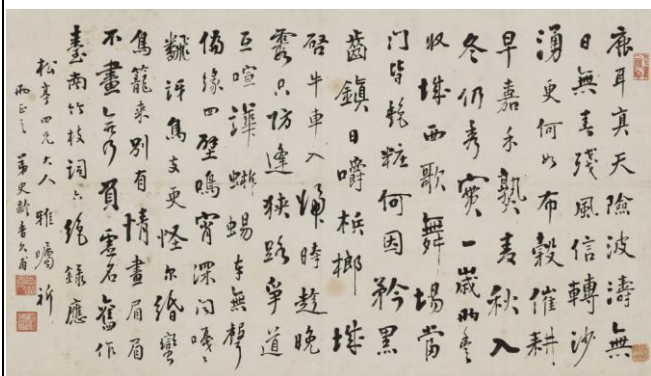 鹿耳真天險波濤無
日無春殘風信轉沙
湧更何如布穀催耕
早嘉禾熟麦秋入
冬仍秀實一歲兩冬
收城西歌舞場當
门皆艳粧何因矜黑
齒鎮日嚼梹榔城
啓牛車入歸時趁晚
霞只防逢狹路爭道
互喧譁蜥蜴本無聲
偏緣四壁鳴宵深闻嘎々
翻訝鳥支更怪尔綿蠻
鳥籠来別有情畫眉眉
不畫无乃負虛名舊作
臺南竹枝詞六绝錄應
松亭四兄大人雅囑祈
正之弟史齡書